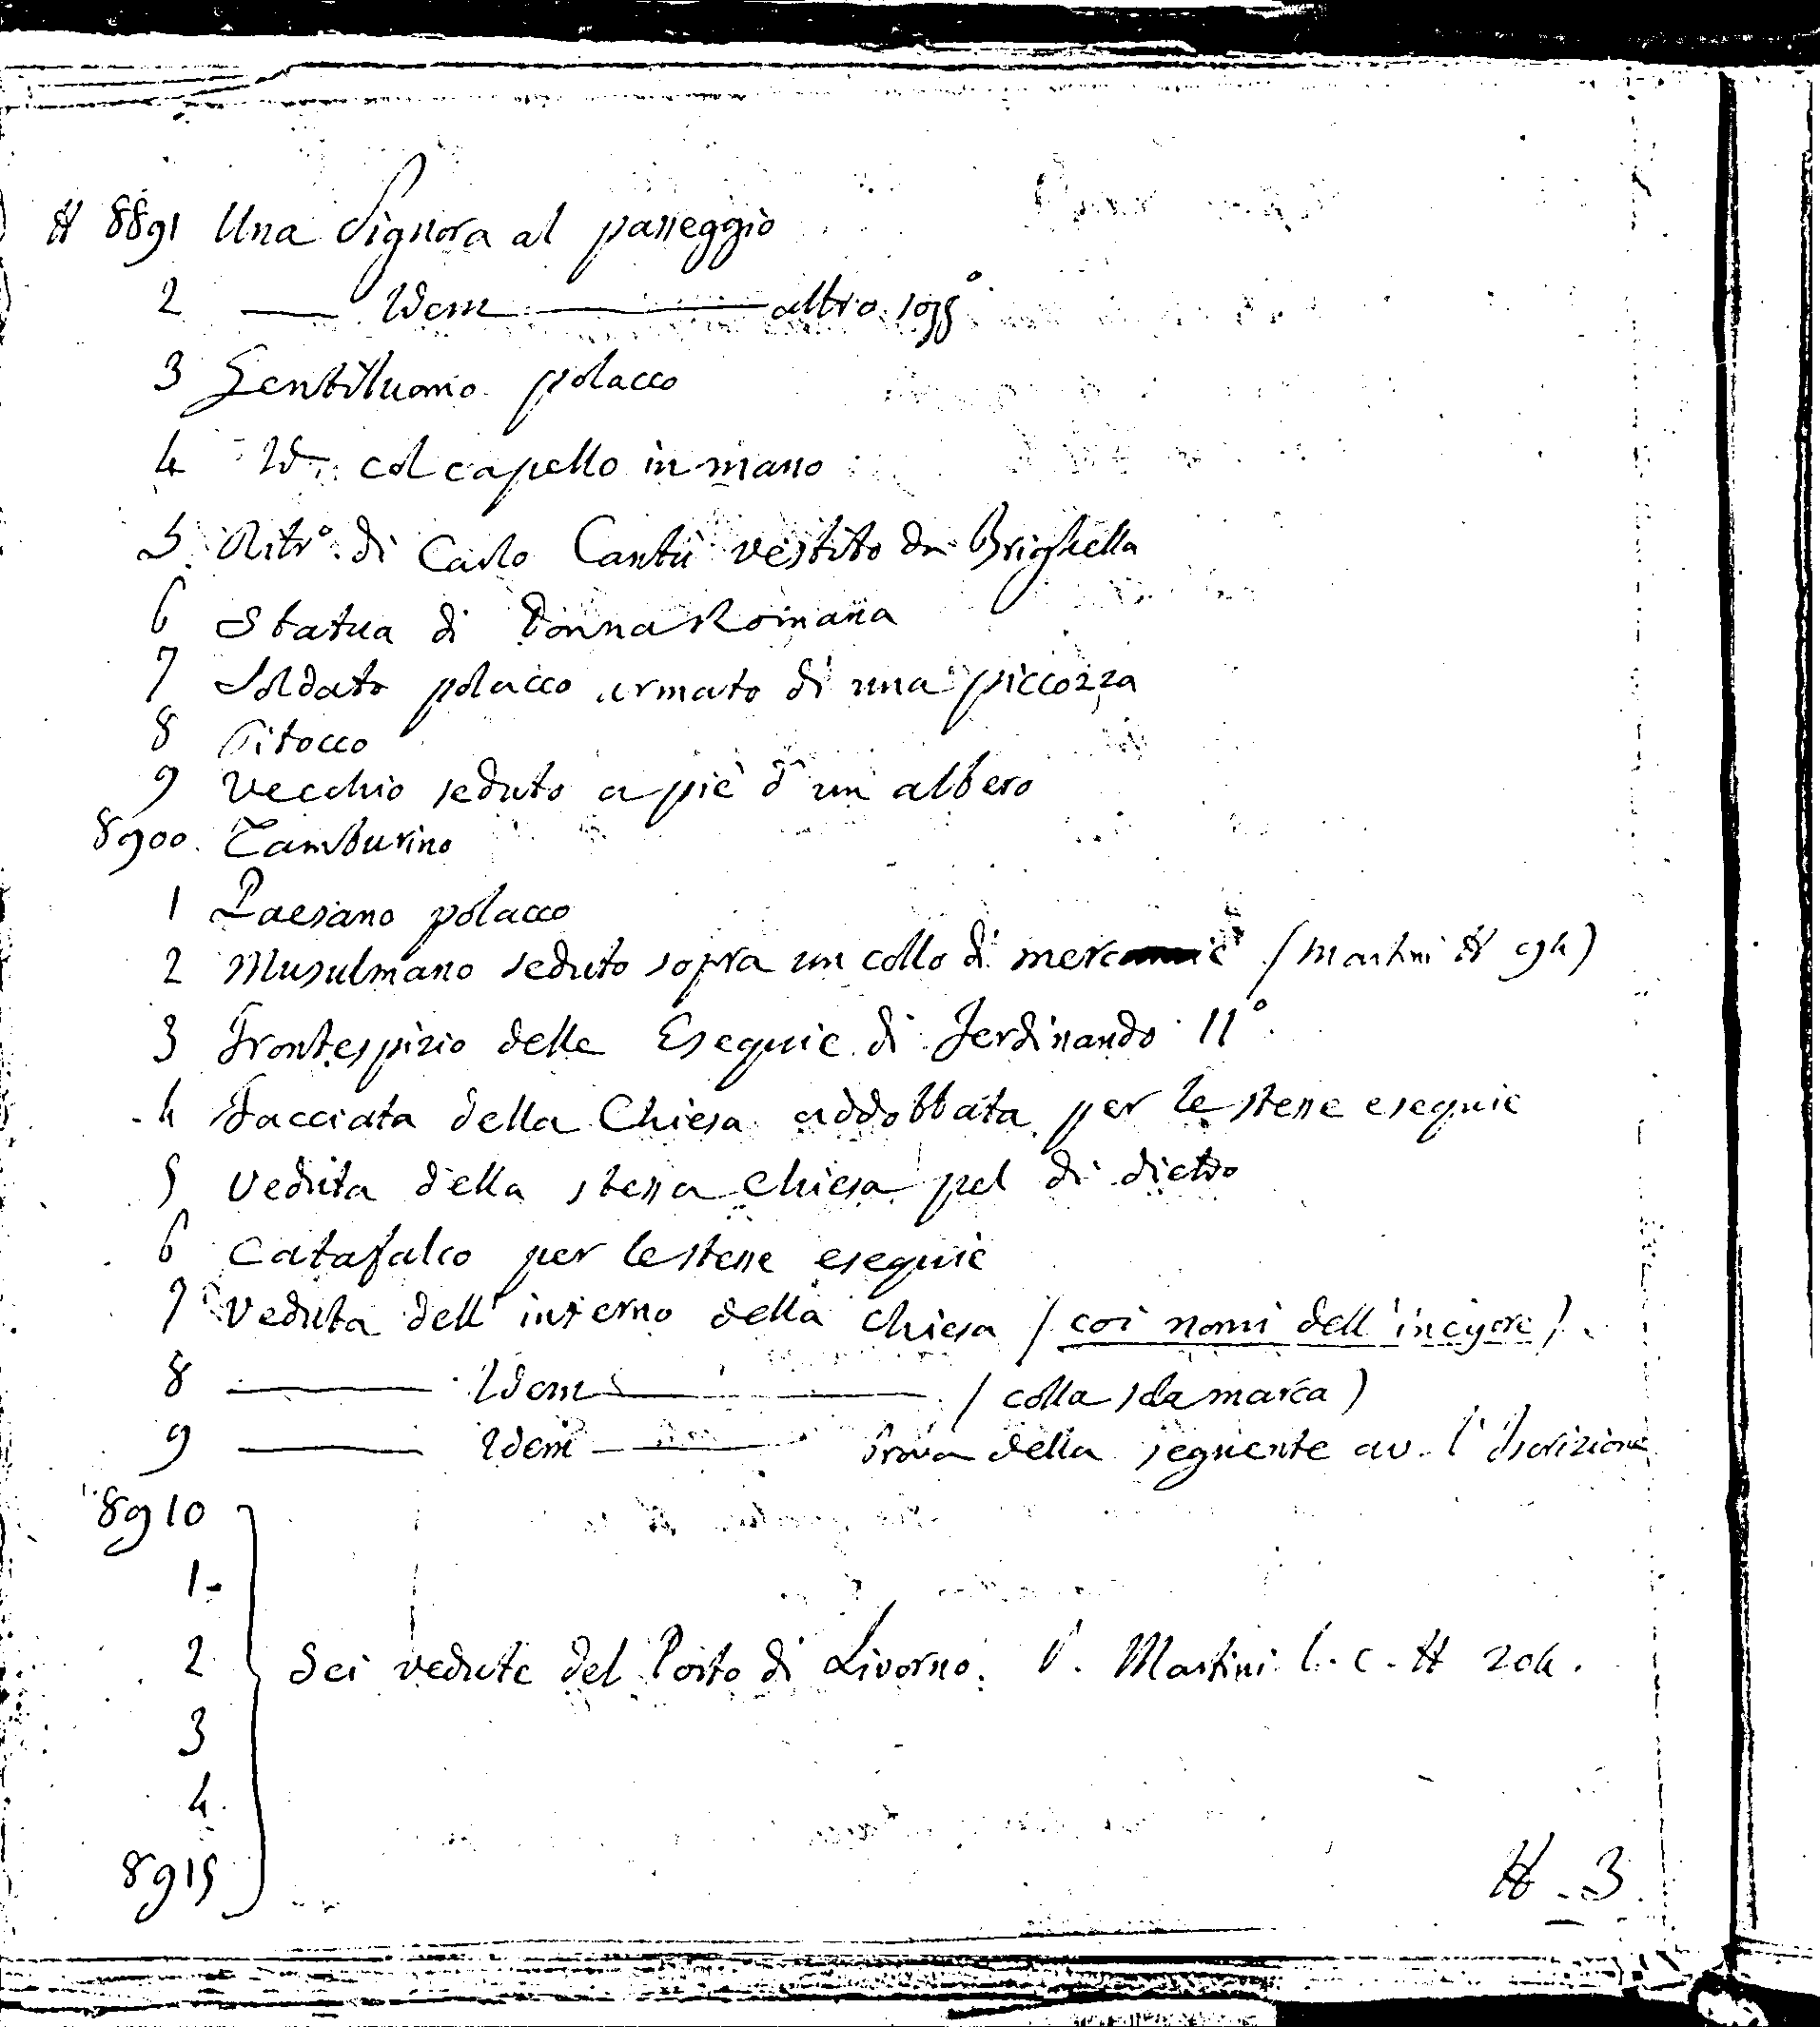 # 8891 Una Signora al passeggio
2 — Idem — altro sogg°
3 Gentiluomo polacco
4 Id. col capello in mano
5 Ritr° di Carlo Cantù vestito da Brighella
6 Statua di Donna Romana
7 Soldato polacco armato di una piccozza
8 Pitocco
9 Vecchio seduto a piè d'un albero
8900. Tamburino
1 Paesano polacco
2 Musulmano seduto sopra un collo di (Martini # 94)
3 Frontespizio delle Esequie di Ferdinando II°.
4 Facciata della Chiesa addobbata per le stesse esequie
5 Veduta della stessa chiesa pel di dietro
6 Catafalco per le stesse esequie
7 Veduta dell'interno della chiesa (coi nomi dell'incisore).
8 — Idem — (colla sda marca)
9 — Idem — Prova della seguente av. l'Iscrizione
8910
1-
2 Sei vedute del Porto di Livorno. V. Martini l. c. # 204.
3
4.
8915
# . 3